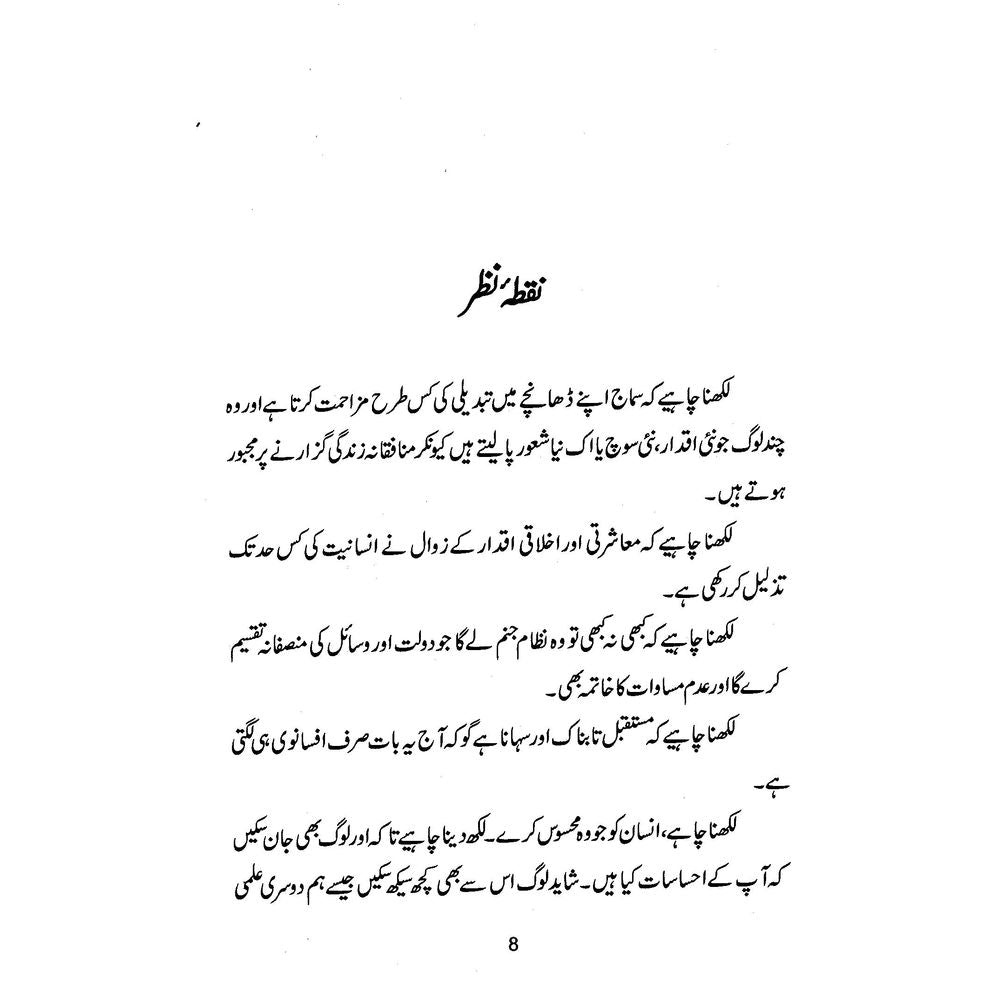 نقطۂ نظر
لکھنا چاہیے کہ سماج اپنے ڈھانچے میں تبدیلی کی کس طرح مزاحمت کرتا ہے اور وہ
چند لوگ جو نئی اقدار، نئی سوچ یا اک نیا شعور پا لیتے ہیں کیونکر منافقانہ زندگی گزارنے پر مجبور
ہوتے ہیں۔
لکھنا چاہیے کہ معاشرتی اور اخلاقی اقدار کے زوال نے انسانیت کی کس حد تک
تذلیل کر رکھی ہے۔
لکھنا چاہیے کہ کبھی نہ کبھی تو وہ نظام جنم لے گا جو دولت اور وسائل کی منصفانہ تقسیم
کرے گا اور عدم مساوات کا خاتمہ بھی۔
لکھنا چاہیے کہ مستقبل تابناک اور سہانا ہے گو کہ آج یہ بات صرف افسانوی ہی لگتی
ہے۔
لکھنا چاہے، انسان کو جو وہ محسوس کرے۔ لکھ دینا چاہیے تاکہ اور لوگ بھی جان سکیں
کہ آپ کے احساسات کیا ہیں۔ شاید لوگ اس سے بھی کچھ سیکھ سکیں جیسے ہم دوسری علمی
8